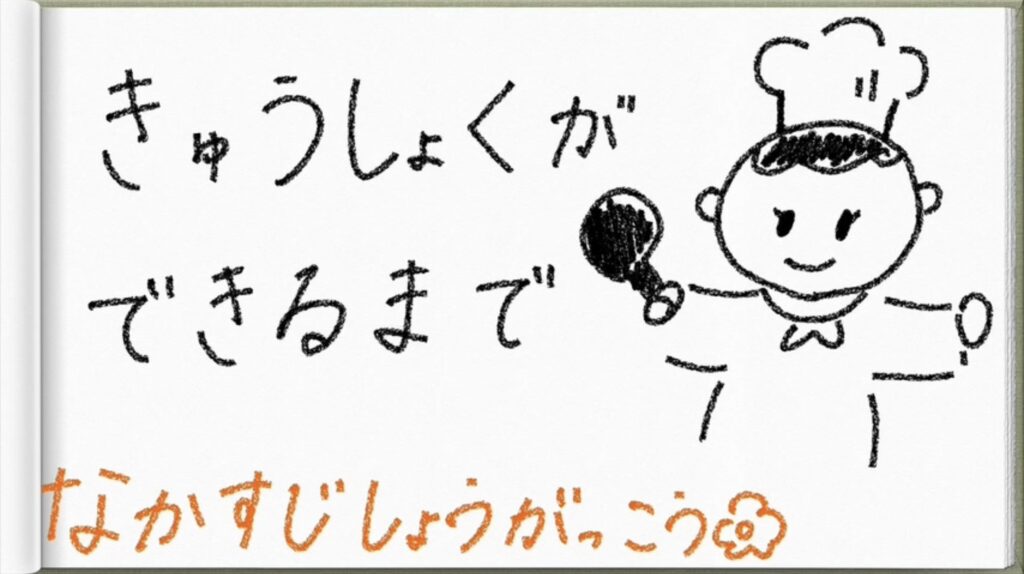 きゅうしょくが
できるまで
なかすじしょうがっこう